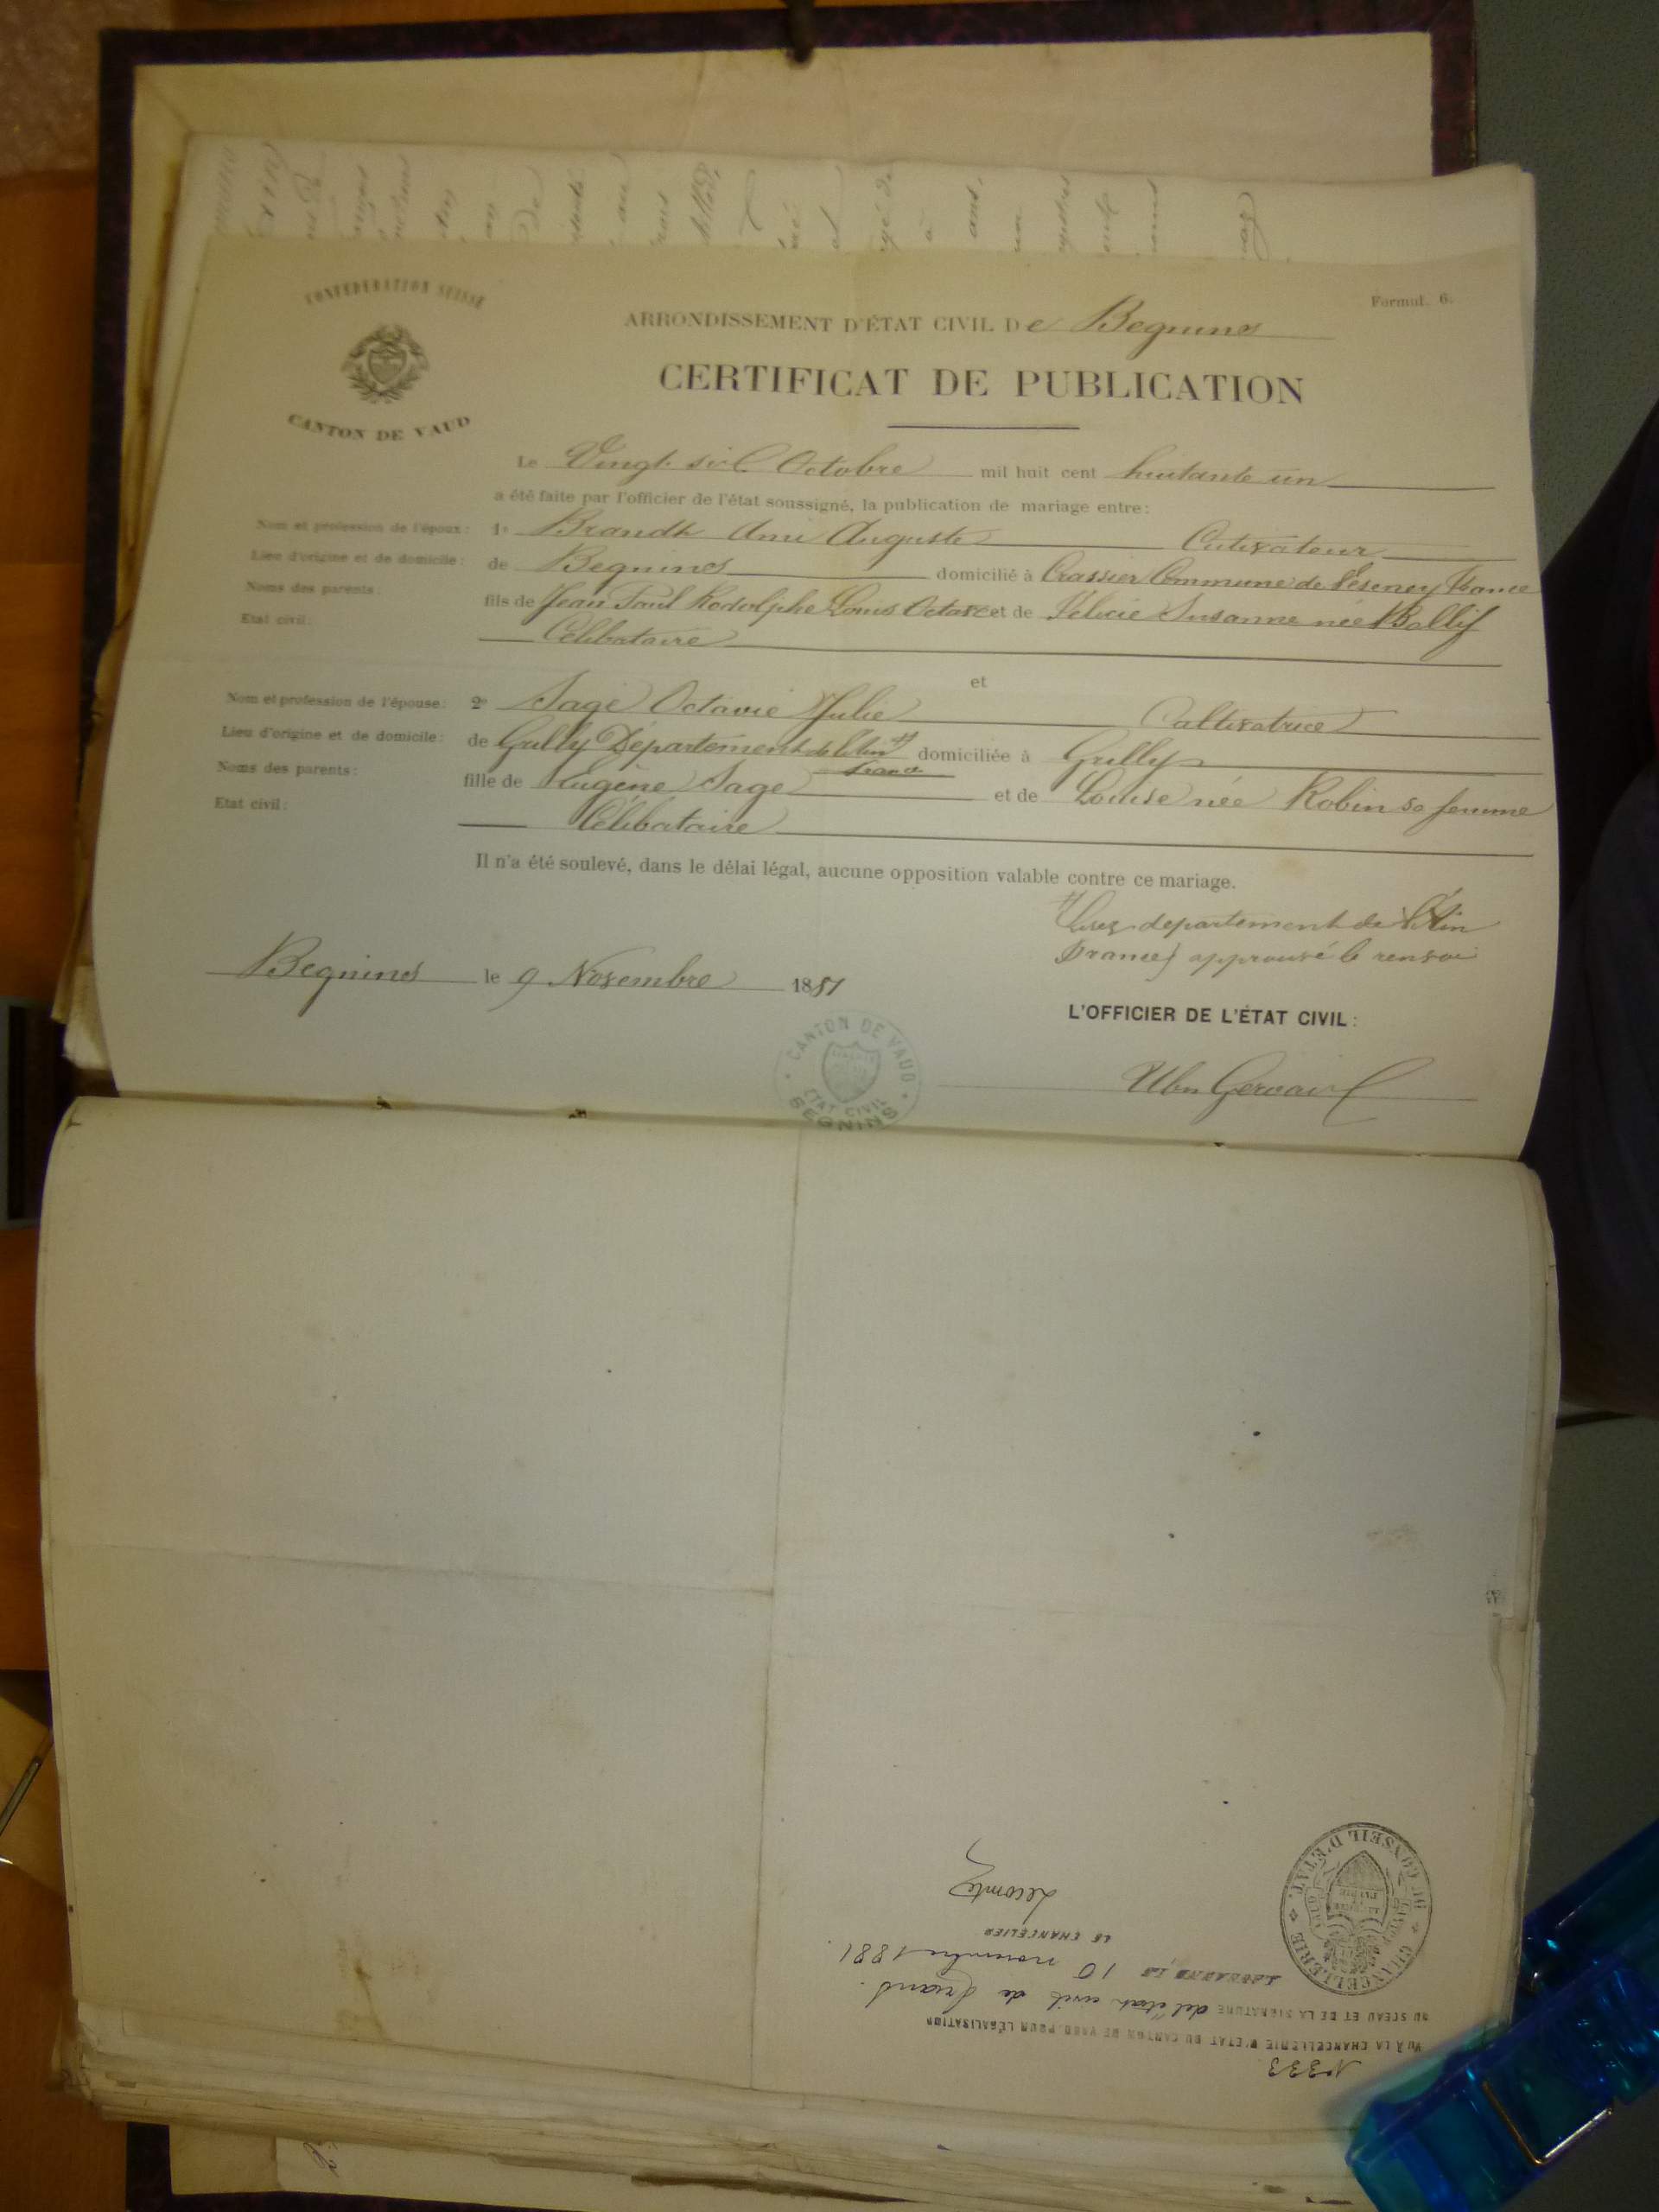 CONFÉDÉRATION SUISSE
CANTON DE VAUD
Formul. 6.
ARRONDISSEMENT D'ÉTAT CIVIL De Begnins
CERTIFICAT DE PUBLICATION
Le Vingt six Octobre mil huit cent huitante un
a été faite par l'officier de l'état soussigné, la publication de mariage entre:
Nom et profession de l'époux: 1º Brandt Ami Auguste Cutivateur
Lieu d'origine et de domicile: de Begnins domicilié à Crassier Commune de Vésenex France
Noms des parents: fils de Jean Paul Rodolphe Louis Octave et de Félicie Susanne née Ballif
Etat civil: Célibataire
et
Nom et profession de l'épouse: 2º Sage Octavie Julie Cultivatrice
Lieu d'origine et de domicile: de Grilly Département de l'Ain # domiciliée à Grilly
France
Noms des parents: fille de Eugène Sage et de Louise née Robin sa femme
Etat civil: Célibataire
Il n'a été soulevé, dans le délai légal, aucune opposition valable contre ce mariage.
# département de l'Ain
France) approuvé le renvoi
Begnins le 9 Novembre 1881
L'OFFICIER DE L'ÉTAT CIVIL:
Gervaix
CANTON DE VAUD
ÉTAT CIVIL
BEGNINS
Nº 333
VU À LA CHANCELLERIE D'ÉTAT DU CANTON DE VAUD POUR LÉGALISATION
DU SCEAU ET DE LA SIGNATURE de l'état civil de
LAUSANNE, LE 10 novembre 1881.
LE CHANCELIER
Lecomte
CHANCELLERIE DU CONSEIL D'ÉTAT